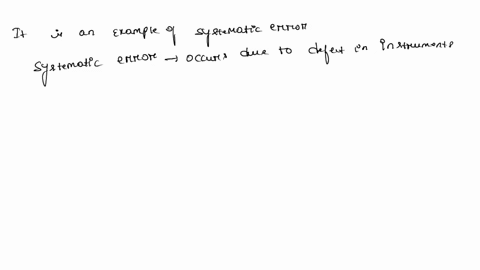 It is an example of systematic error
Systematic error → occurs due to defect in instruments